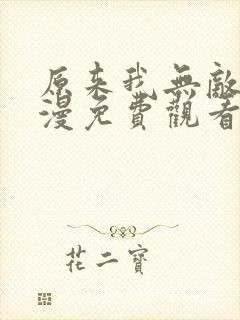 原来我無敵
漫免費觀看
花二寶